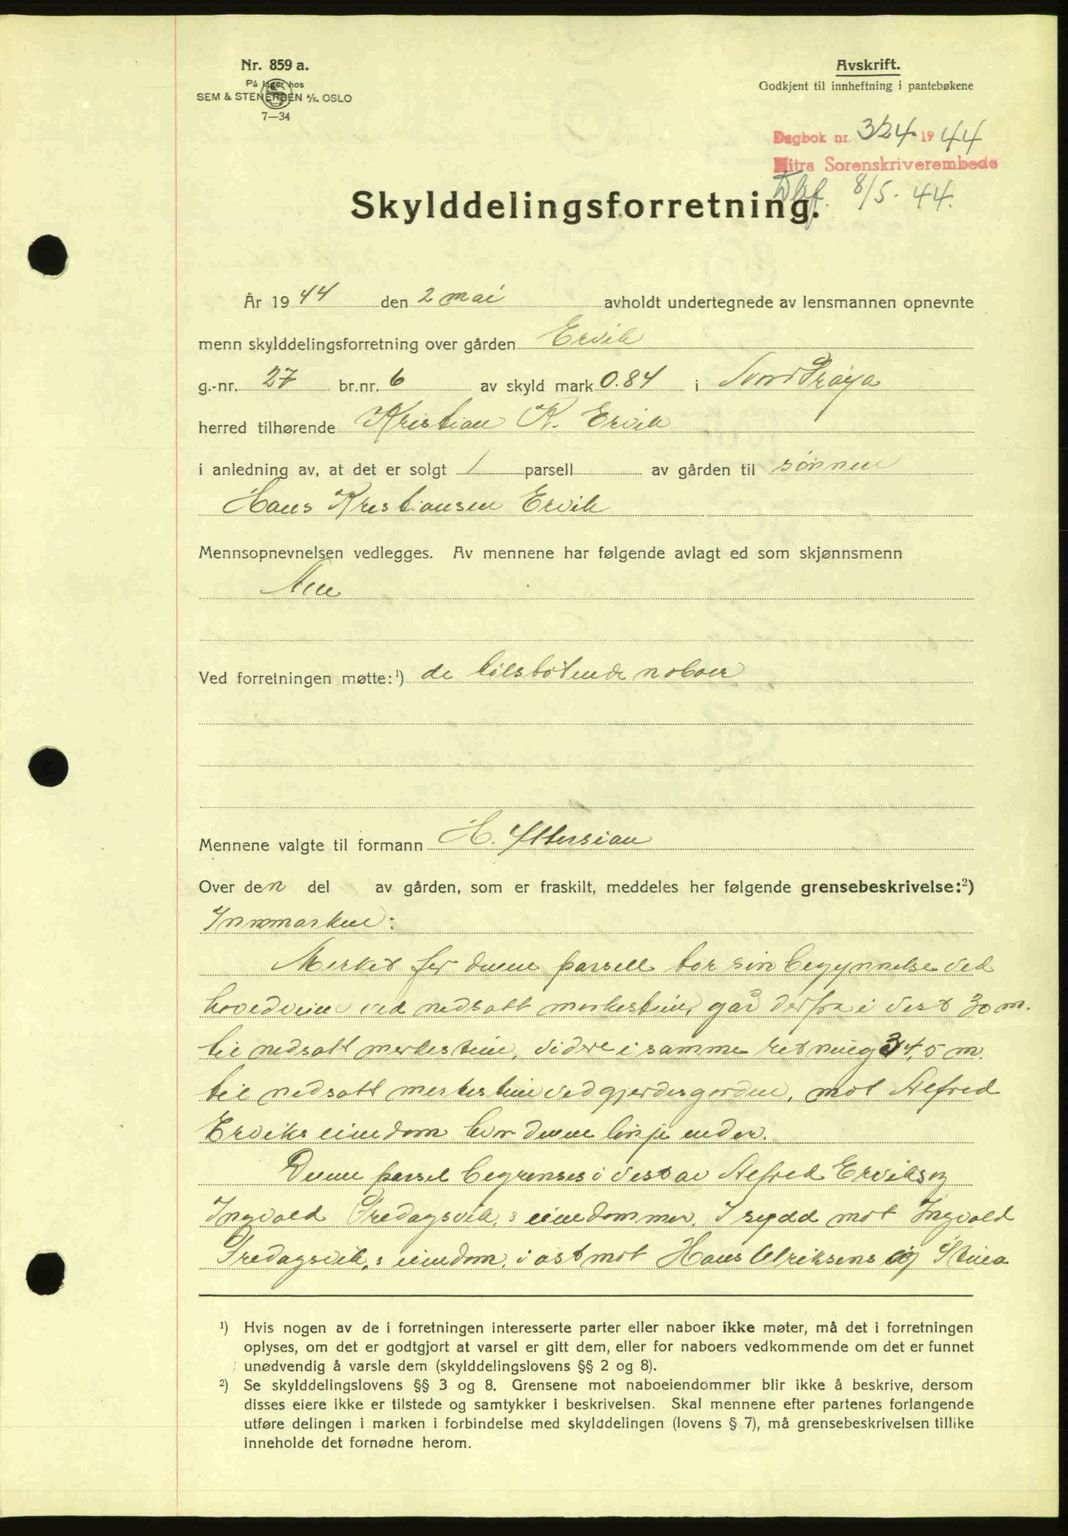 Nr. 859 a.
På lager hos
SEM & STENERSEN A/S. OSLO
7—34
Avskrift.
Godkjent til innheftning i pantebøkene
Dagbok nr. 324 1944
Hitra Sorenskriverembede
Dbf. 8/5. 44.
Skylddelingsforretning.
År 1944 den 2 mai avholdt undertegnede av lensmannen opnevnte
menn skylddelingsforretning over gården Ervik
g.-nr. 27 br.nr. 6 av skyld mark 0.84 i Nord Frøya
herred tilhørende Kristian K. Ervik
i anledning av, at det er solgt 1 parsell av gården til sønnen
Hans Kristiansen Ervik
Mennsopnevnelsen vedlegges. Av mennene har følgende avlagt ed som skjønnsmenn
Alle
Ved forretningen møtte:¹) de tilstøtende naboer
Mennene valgte til formann H. Yttersian
Over den del av gården, som er fraskilt, meddeles her følgende grensebeskrivelse:²)
Innmarken:
Merket for denne parsell tar sin begynnelse ved
hovedveien ved nedsatt merkestein, går derfra i vest 30 m.
til nedsatt merkestein, videre i samme retning 34,5 m.
til nedsatt merkestein ved gjerdesgarden, mot Alfred
Erviks eiendom hvor denne linje ender.
Denne parsel begrenses i vest av Alfred Erviks og
Ingvald Fredagsvik,s eiendommer. I sydd mot Ingvald
Fredagsvik,s eiendom, i øst mot Hans Ulriksens og Stina
¹) Hvis nogen av de i forretningen interesserte parter eller naboer ikke møter, må det i forretningen
oplyses, om det er godtgjort at varsel er gitt dem, eller for naboers vedkommende om det er funnet
unødvendig å varsle dem (skylddelingslovens §§ 2 og 8).
²) Se skylddelingslovens §§ 3 og 8. Grensene mot naboeiendommer blir ikke å beskrive, dersom
disses eiere ikke er tilstede og samtykker i beskrivelsen. Skal mennene efter partenes forlangende
utføre delingen i marken i forbindelse med skylddelingen (lovens § 7), må grensebeskrivelsen tillike
inneholde det fornødne herom.